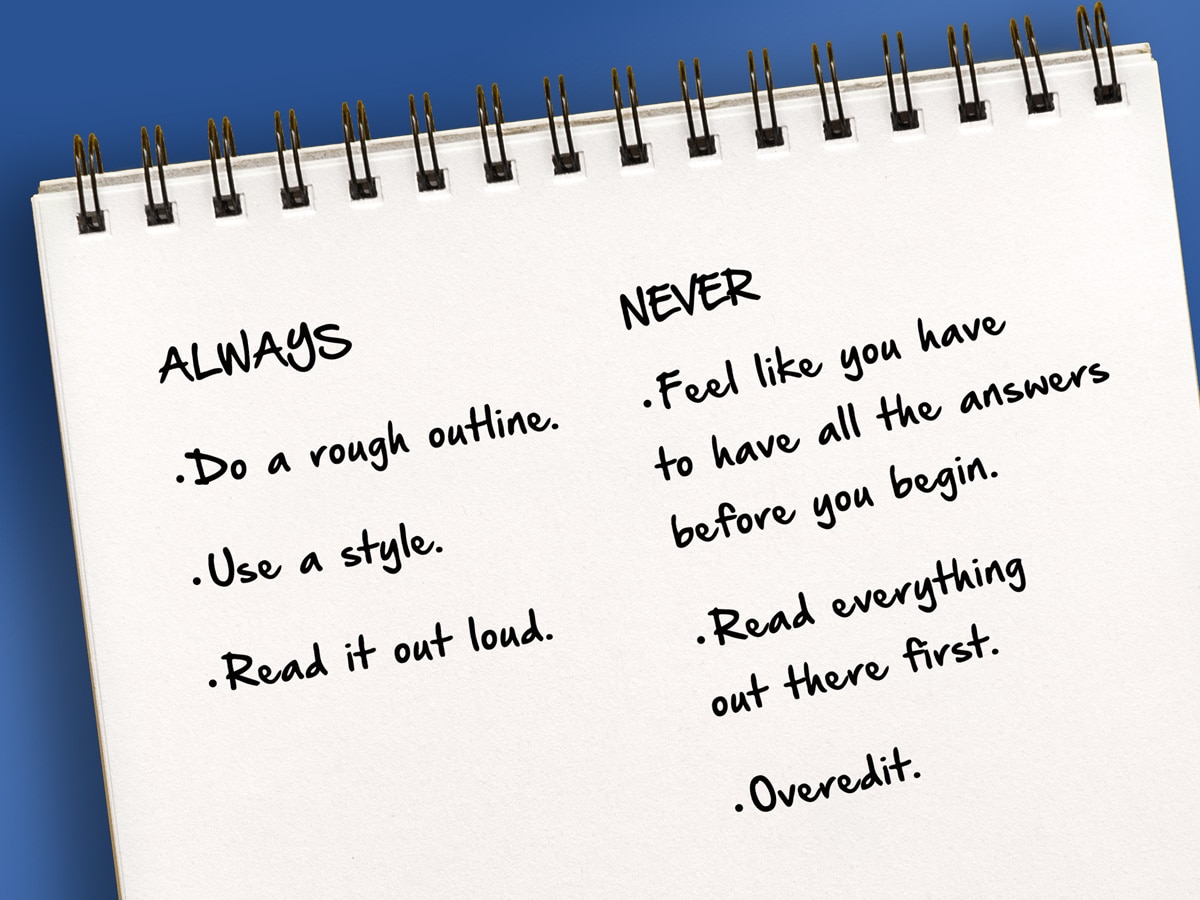 ALWAYS
.Do a rough outline.
.Use a style.
.Read it out loud.
NEVER
.Feel like you have
to have all the answers
before you begin.
.Read everything
out there first.
.Overedit.